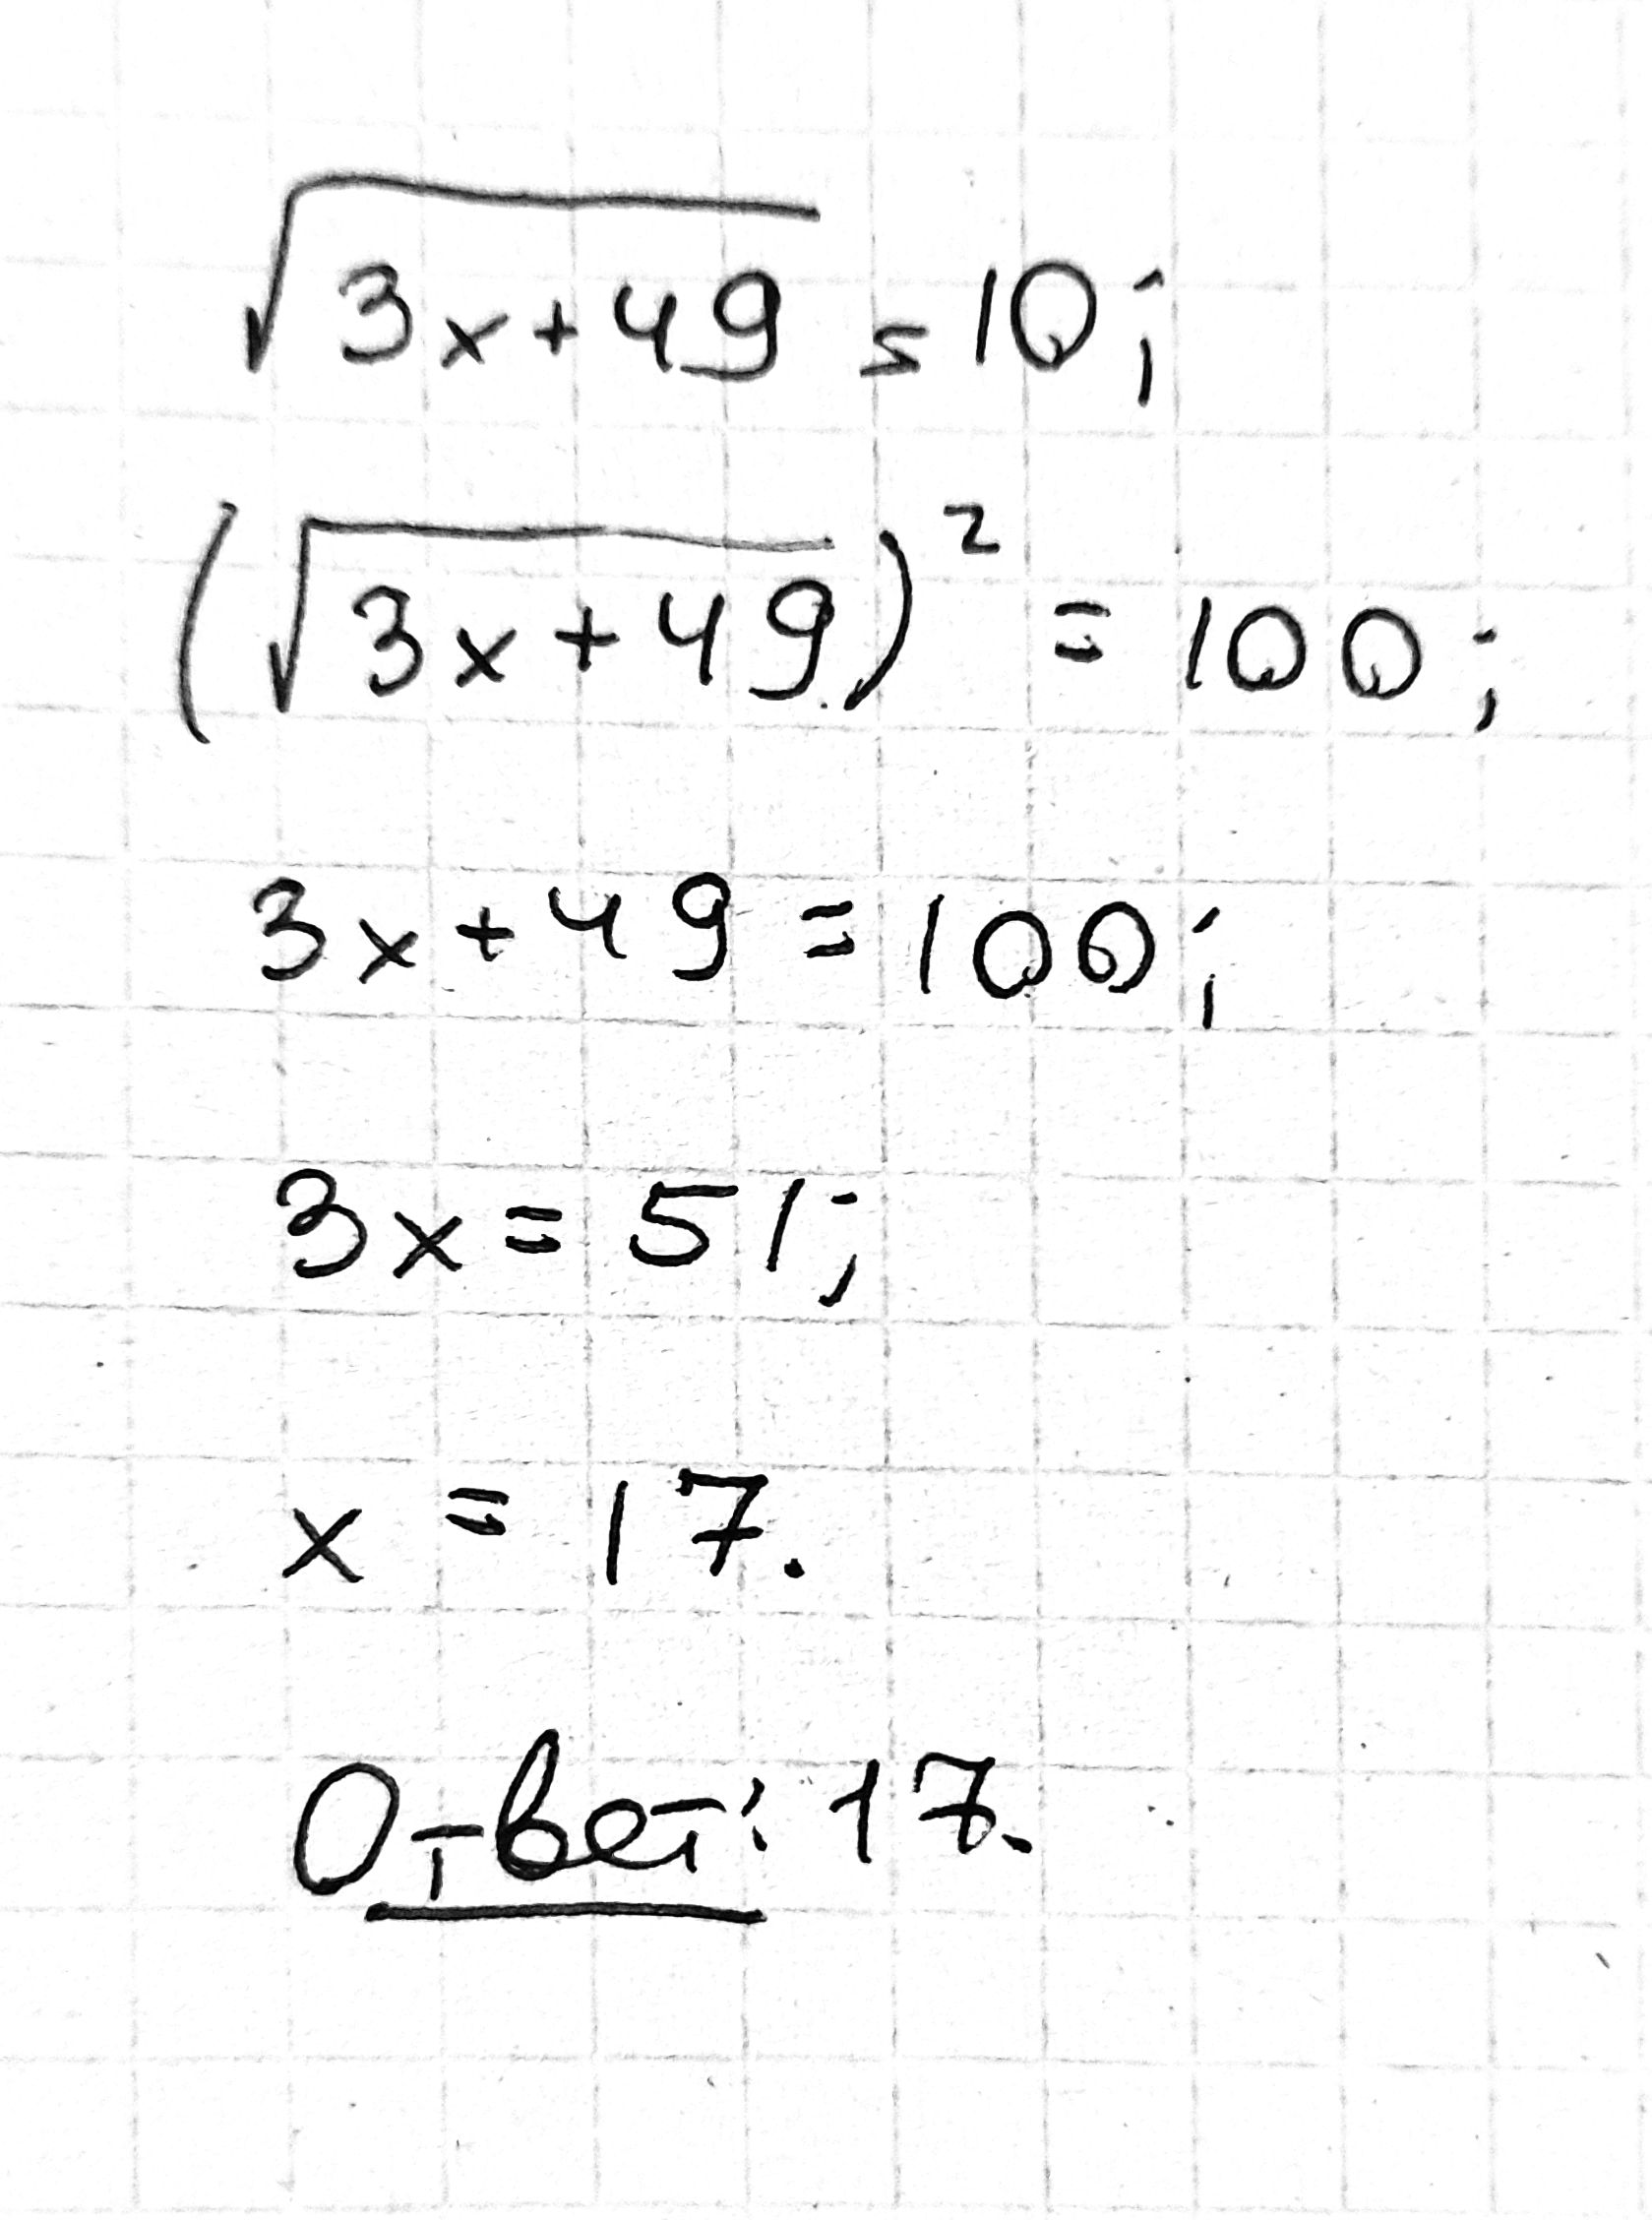 √(3x+49) = 10;
(√(3x+49))² = 100;
3x+49=100;
3x=51;
x = 17.
Ответ: 17.